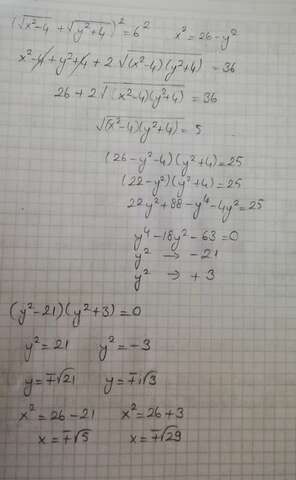 (√x²-4 + √y²+4)² = 6² x² = 26 - y²
x² - 4 + y² + 4 + 2√(x²-4)(y²+4) = 36
26 + 2√(x²-4)(y²+4) = 36
√(x²-4)(y²+4) = 5
(26-y²-4)(y²+4) = 25
(22-y²)(y²+4) = 25
22y² + 88 - y⁴ - 4y² = 25
y⁴ - 18y² - 63 = 0
y² → -21
y² → +3
(y²-21)(y²+3) = 0
y² = 21 y² = -3
y = ∓√21 y = ∓√3
x² = 26 - 21 x² = 26 + 3
x = ∓√5 x = ∓√29